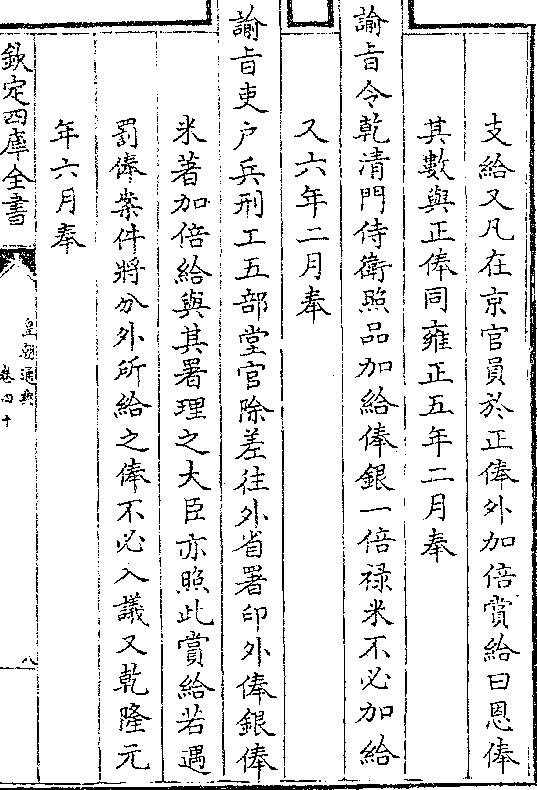 支給又凡在京官員於正俸外加倍賞給曰恩俸
其數與正俸同雍正五年二月奉
諭旨令乾清門侍衛照品加給俸銀一倍祿米不必加給
又六年二月奉
諭旨吏户兵刑工五部堂官除差往外省署印外俸銀俸
米著加倍給與其署理之大臣亦照此賞給若遇
罰俸案件將分外所給之俸不必入議又乾隆元
年六月奉
欽定四庫全書
皇朝通典
卷四十
八